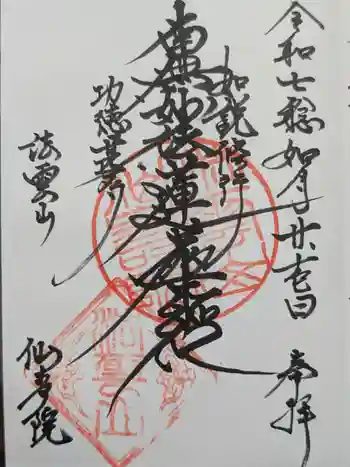 令和七稔如月廿六日
奉拝
如説修行
南無妙法蓮華経
功徳甚多
法雲山
仙寿院